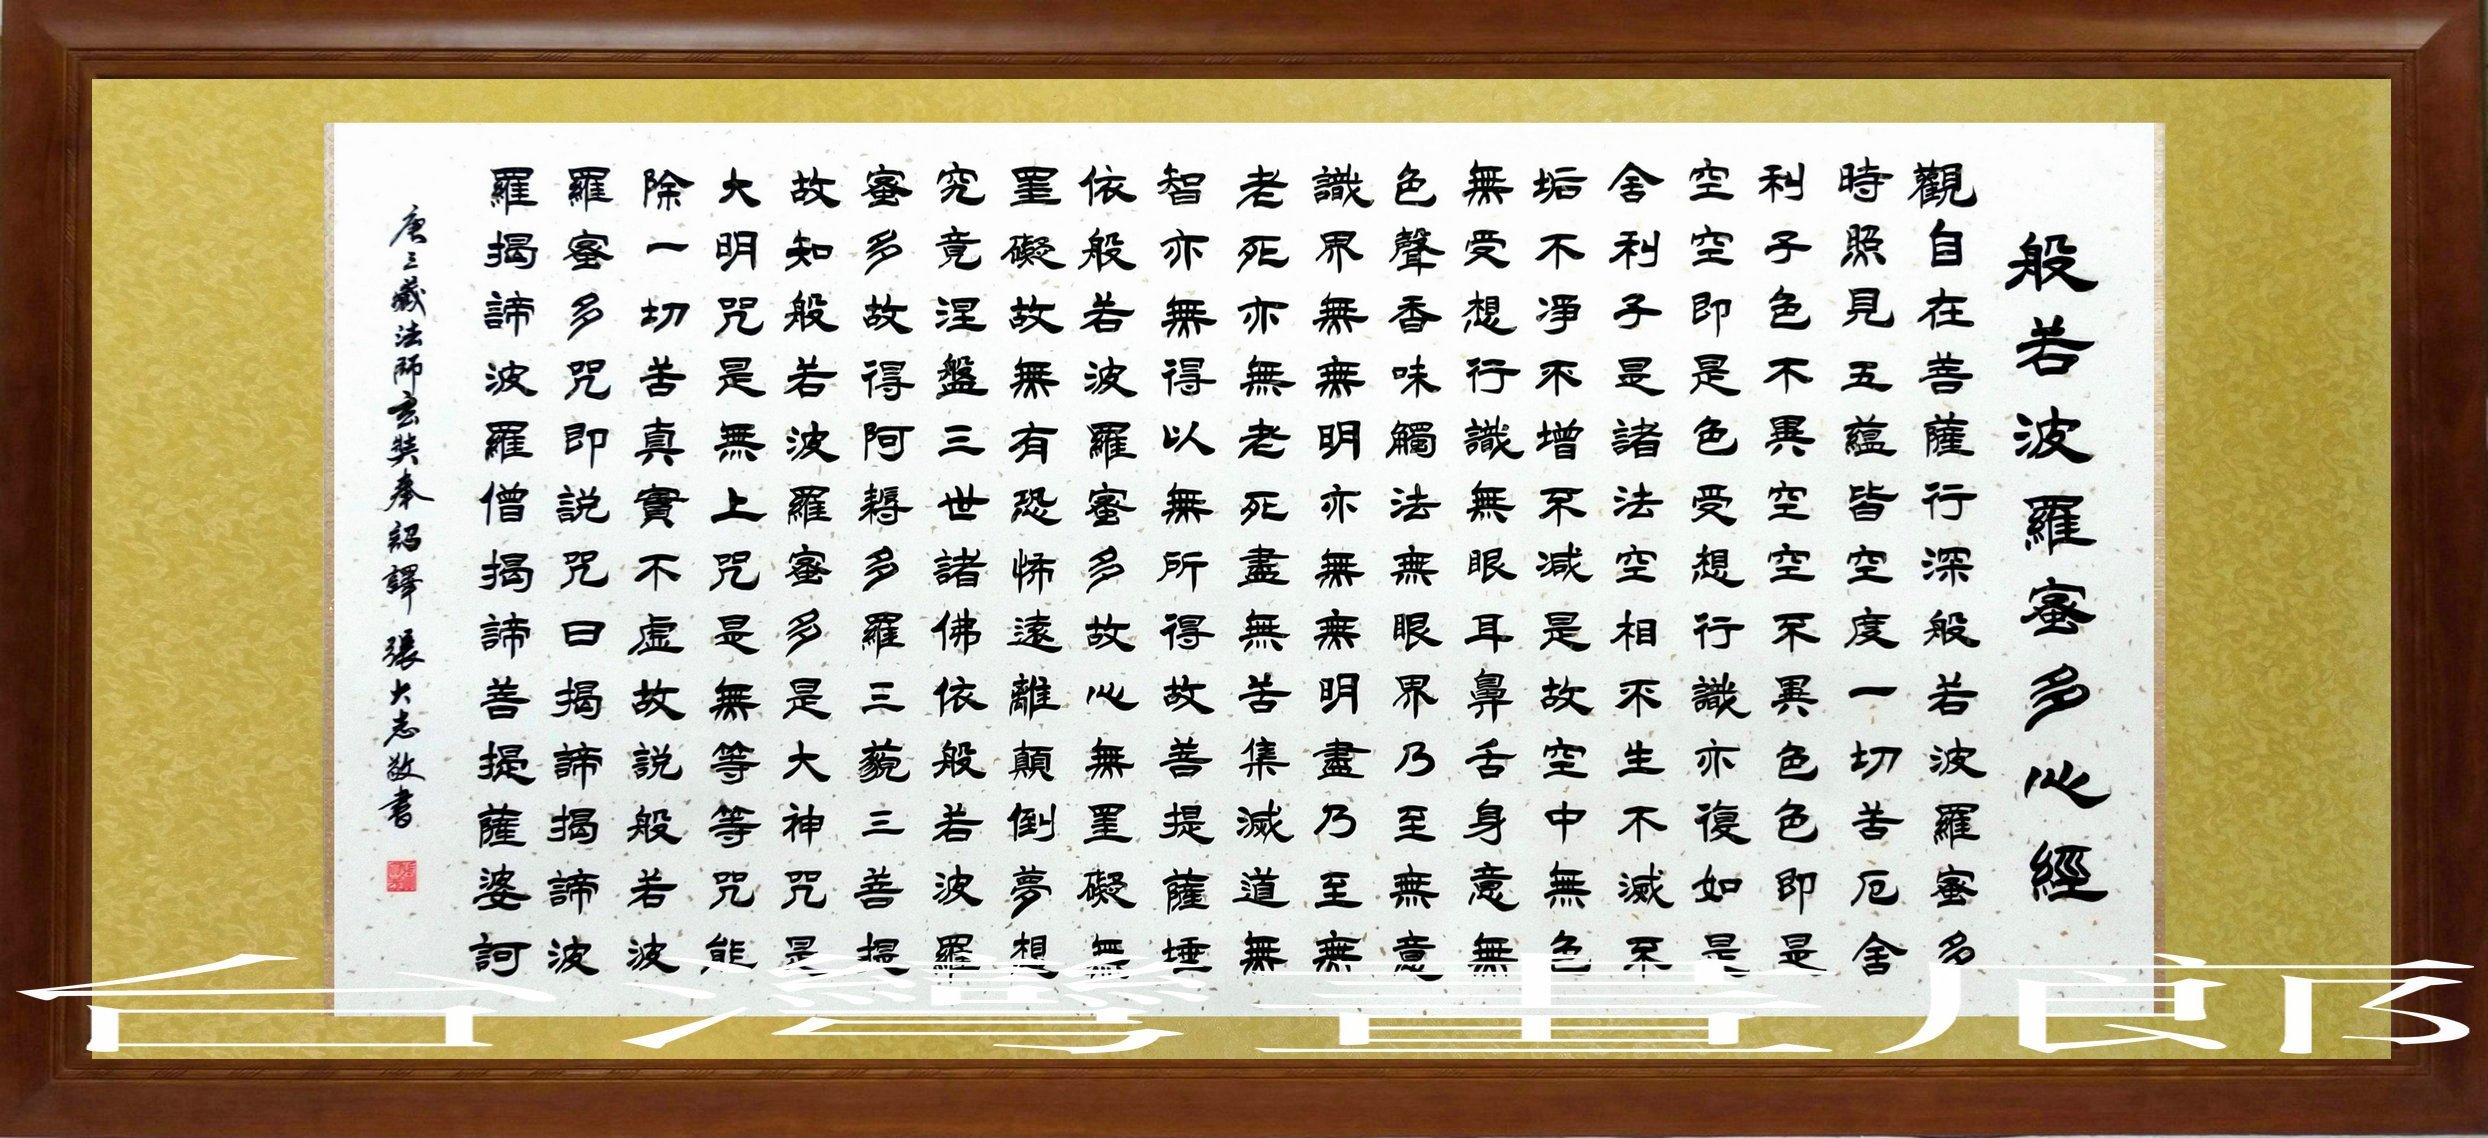 般若波羅蜜多心經
觀自在菩薩行深般若波羅蜜多
時照見五蘊皆空度一切苦厄舍
利子色不異空空不異色色即是
空空即是色受想行識亦復如是
舍利子是諸法空相不生不滅不
垢不淨不增不減是故空中無色
無受想行識無眼耳鼻舌身意無
色聲香味觸法無眼界乃至無意
識界無無明亦無無明盡乃至無
老死亦無老死盡無苦集滅道無
智亦無得以無所得故菩提薩埵
依般若波羅蜜多故心無罣礙無
罣礙故無有恐怖遠離顛倒夢想
究竟涅盤三世諸佛依般若波羅
蜜多故得阿耨多羅三藐三菩提
故知般若波羅蜜多是大神咒是
大明咒是無上咒是無等等咒能
除一切苦真實不虛故說般若波
羅蜜多咒即說咒曰揭諦揭諦波
羅揭諦波羅僧揭諦菩提薩婆訶
唐三藏法師玄奘奉詔譯 張大志敬書
台灣畫廊